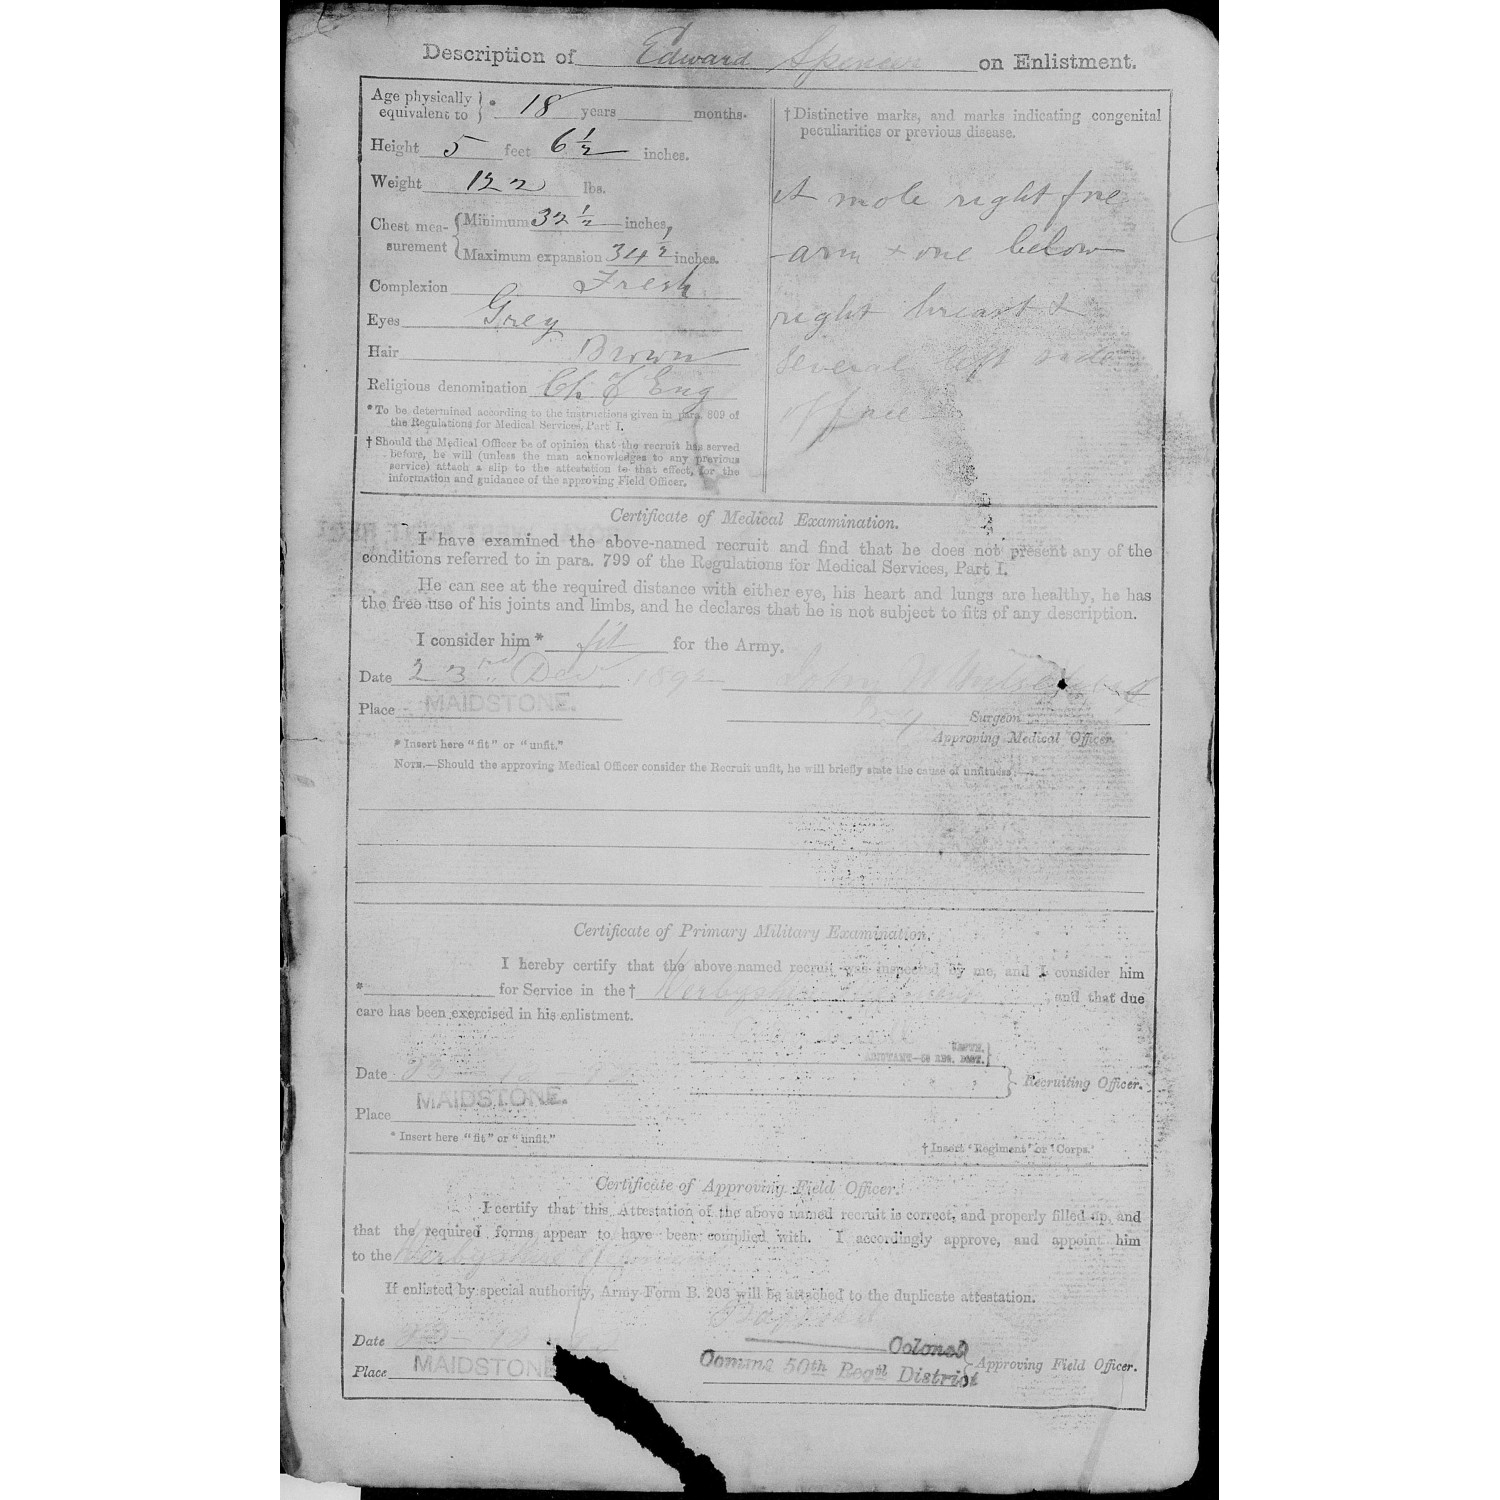 Description of Edward Spencer on Enlistment.
Age physically equivalent to } * 18 years months.
Height 5 feet 6 1/2 inches.
Weight 122 lbs.
Chest mea- { Minimum 32 1/2 inches,
surement { Maximum expansion 34 1/2 inches.
Complexion Fresh
Eyes Grey
Hair Brown
Religious denomination Ch. of Eng
* To be determined according to the instructions given in para. 809 of
the Regulations for Medical Services, Part I.
† Should the Medical Officer be of opinion that the recruit has served
before, he will (unless the man acknowledges to any previous
service) attach a slip to the attestation to that effect, for the
information and guidance of the approving Field Officer.
† Distinctive marks, and marks indicating congenital
peculiarities or previous disease.
A mole right fore
-arm + one below
right breast &
several left side
of face
Certificate of Medical Examination.
I have examined the above-named recruit and find that he does not present any of the
conditions referred to in para. 799 of the Regulations for Medical Services, Part I.
He can see at the required distance with either eye, his heart and lungs are healthy, he has
the free use of his joints and limbs, and he declares that he is not subject to fits of any description.
I consider him * fit for the Army.
Date 23rd Dec 1892
Place MAIDSTONE.
Surgeon
Approving Medical Officer.
* Insert here "fit" or "unfit."
NOTE.—Should the approving Medical Officer consider the Recruit unfit, he will briefly state the cause of unfitness.
Certificate of Primary Military Examination.
I hereby certify that the above-named recruit was inspected by me, and I consider him
* for Service in the † Derbyshire Regiment, and that due
care has been exercised in his enlistment.
CAPTN.
ADJUTANT—50 REG. DIST.
Date 23-12-92
Recruiting Officer.
Place MAIDSTONE.
* Insert here "fit" or "unfit."
† Insert 'Regiment' or 'Corps.'
Certificate of Approving Field Officer.
I certify that this Attestation of the above named recruit is correct, and properly filled up, and
that the required forms appear to have been complied with. I accordingly approve, and appoint him
to the Derbyshire Regiment
If enlisted by special authority, Army Form B. 203 will be attached to the duplicate attestation.
Date 23-12
Colonel
Comdng 50th Regtl District
Approving Field Officer.
Place MAIDSTONE